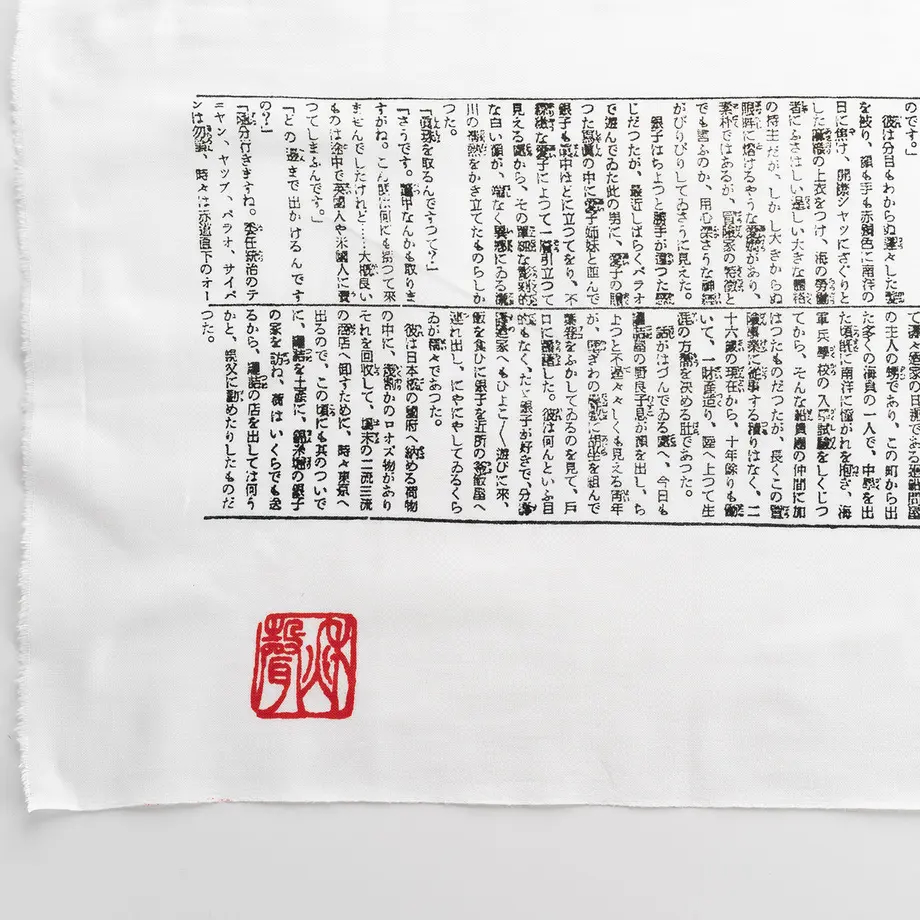 のです。」
彼は分目もわからぬ蓬々した髪
を被り、顔も手も赤銅色に南洋の
日に燻け、開襟シャツにざぐりと
した麻織の上衣をつけ、海の勞働
者にふさはしい逞しい大きな體格
の持主だが、しかし大きからぬ
眼眸に熔けるやうな愛嬌があり、
素朴ではあるが、冒險家の特徴と
でも言ふのか、用心深さうな神經
がぴりぴりしてゐさうに見えた。
銀子はちよつと勝手が違つた感
じだつたが、最近しばらくパラオ
で遊んでゐた此の男に、愛子の贈
つた寫眞の中に愛子姉妹と並んで
銀子も眞中ほどに立つてをり、不
縹緻な愛子によつて一層引立つて
見える處から、その單純な彫刻的
な白い顔が、端なく異郷にゐる
川の情熱をかき立てたものらしか
つた。
「眞珠を取るんですつて?」
「さうです。嘘なんかも取りま
すがね。こん度は何にも獲つて來
ませんでしたけれど……大概良い
ものは途中で英國人や米國人に賣
つてしまふんです。」
「どの邊まで出かけるんです
の?」
「隨分行きますね。委任統治のテ
ニヤン、ヤップ、パラオ、サイパ
ンは勿論、時々は赤道直下のオー
て
の主人の甥であり、この町から出
た多くの海員の一人で、中學を出
た頃既に南洋に憧がれを抱き、海
軍兵學校の入學試驗をしくじつ
てから、そんな船員の仲間に加
はつたものだつたが、長くこの冒
險事業に從事する積りはなく、二
十六歳の現在から、十年餘りも働
いて、一財産造り、陸へ上つて生
涯の方針を決める肚であつた。
話がはづんでゐる處へ、今日も
講話屋の野良子見が顔を出し、ち
よつと不逞々々しくも見える靑年
が、壁ぎわの疊敷に胡坐を組んで
葉卷をふかしてゐるのを見て、戸
口に躊躇した。彼は何んといふ目
的もなく、たゞ銀子が好きで、分
藤家へもひよこ〳〵遊びに來、
飯を食ひに銀子を近所の釜飯屋へ
連れ出し、にやにやしてゐるくら
ゐが精々であつた。
彼は日本橋の國府へ納める荷物
の中に、幾割かのロオズ物があり
それを回收して、場末の二流三流
の商店へ卸すために、時々東京へ
出るので、この頃にも其のついで
に、罐詰を土産に、錦糸堀の銀子
の家を訪ね、荷はいくらでも送
るから、罐詰の店を出しては何う
かと、銀父に勸めたりしたものだ
つた。
秋聲